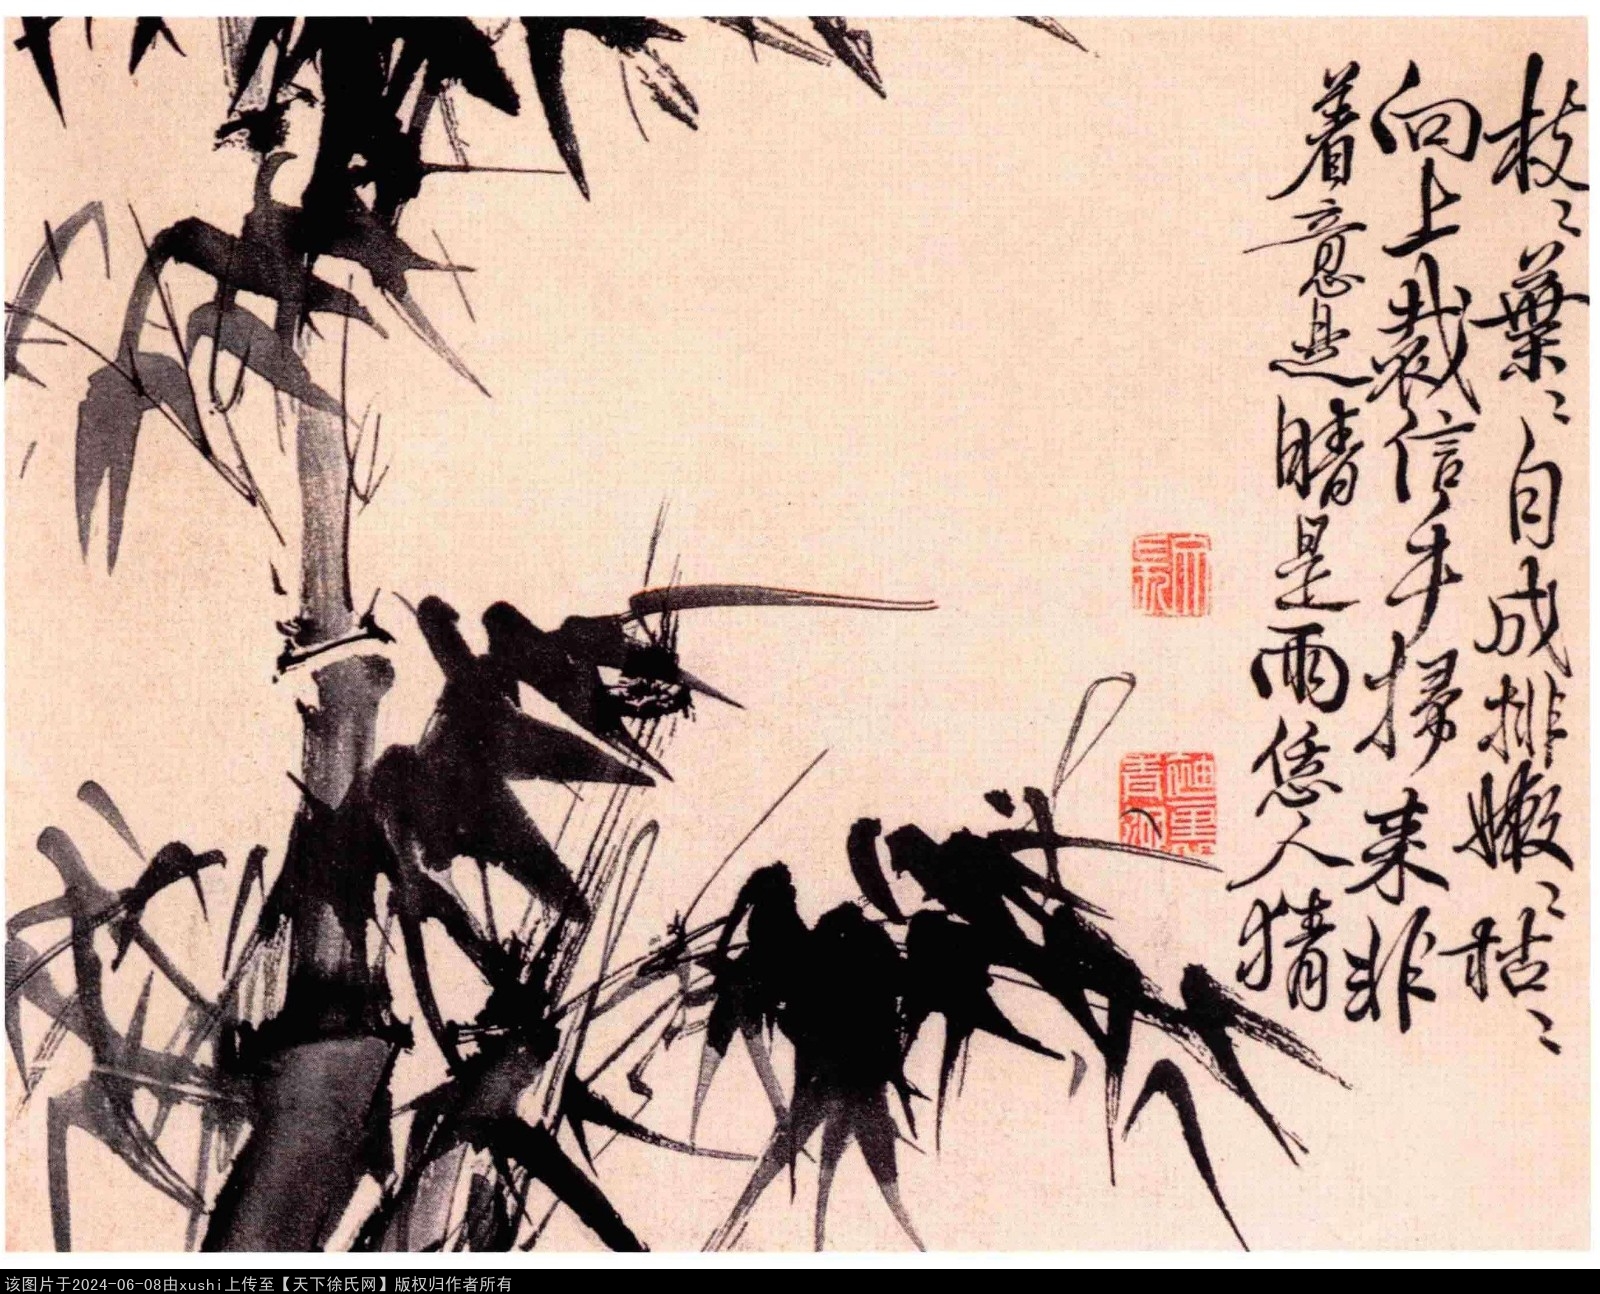 枝〻葉〻自成排嫩〻枯〻
向上裁信手掃来非
着意是晴是雨恁人猜
该图片于2024-06-08由xushi上传至【天下徐氏网】版权归作者所有